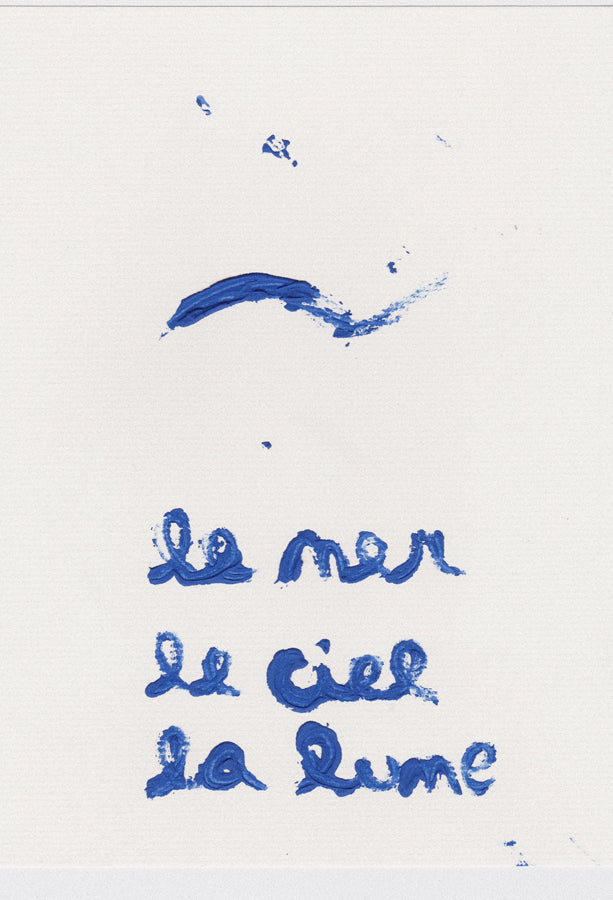 le mer
le ciel
la lume